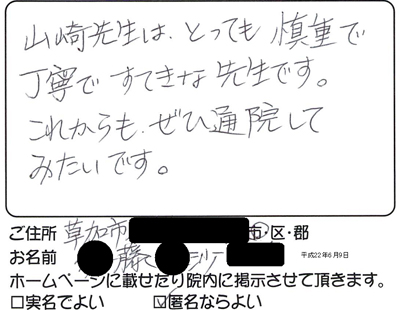 山崎先生は、とっても慎重で
丁寧ですてきな先生です。
これからも、ぜひ通院して
みたいです。
ご住所 草加市 市・区・郡
お名前 藤 沙 平成22年6月9日
ホームページに載せたり院内に掲示させて頂きます。
□実名でよい ☑匿名ならよい